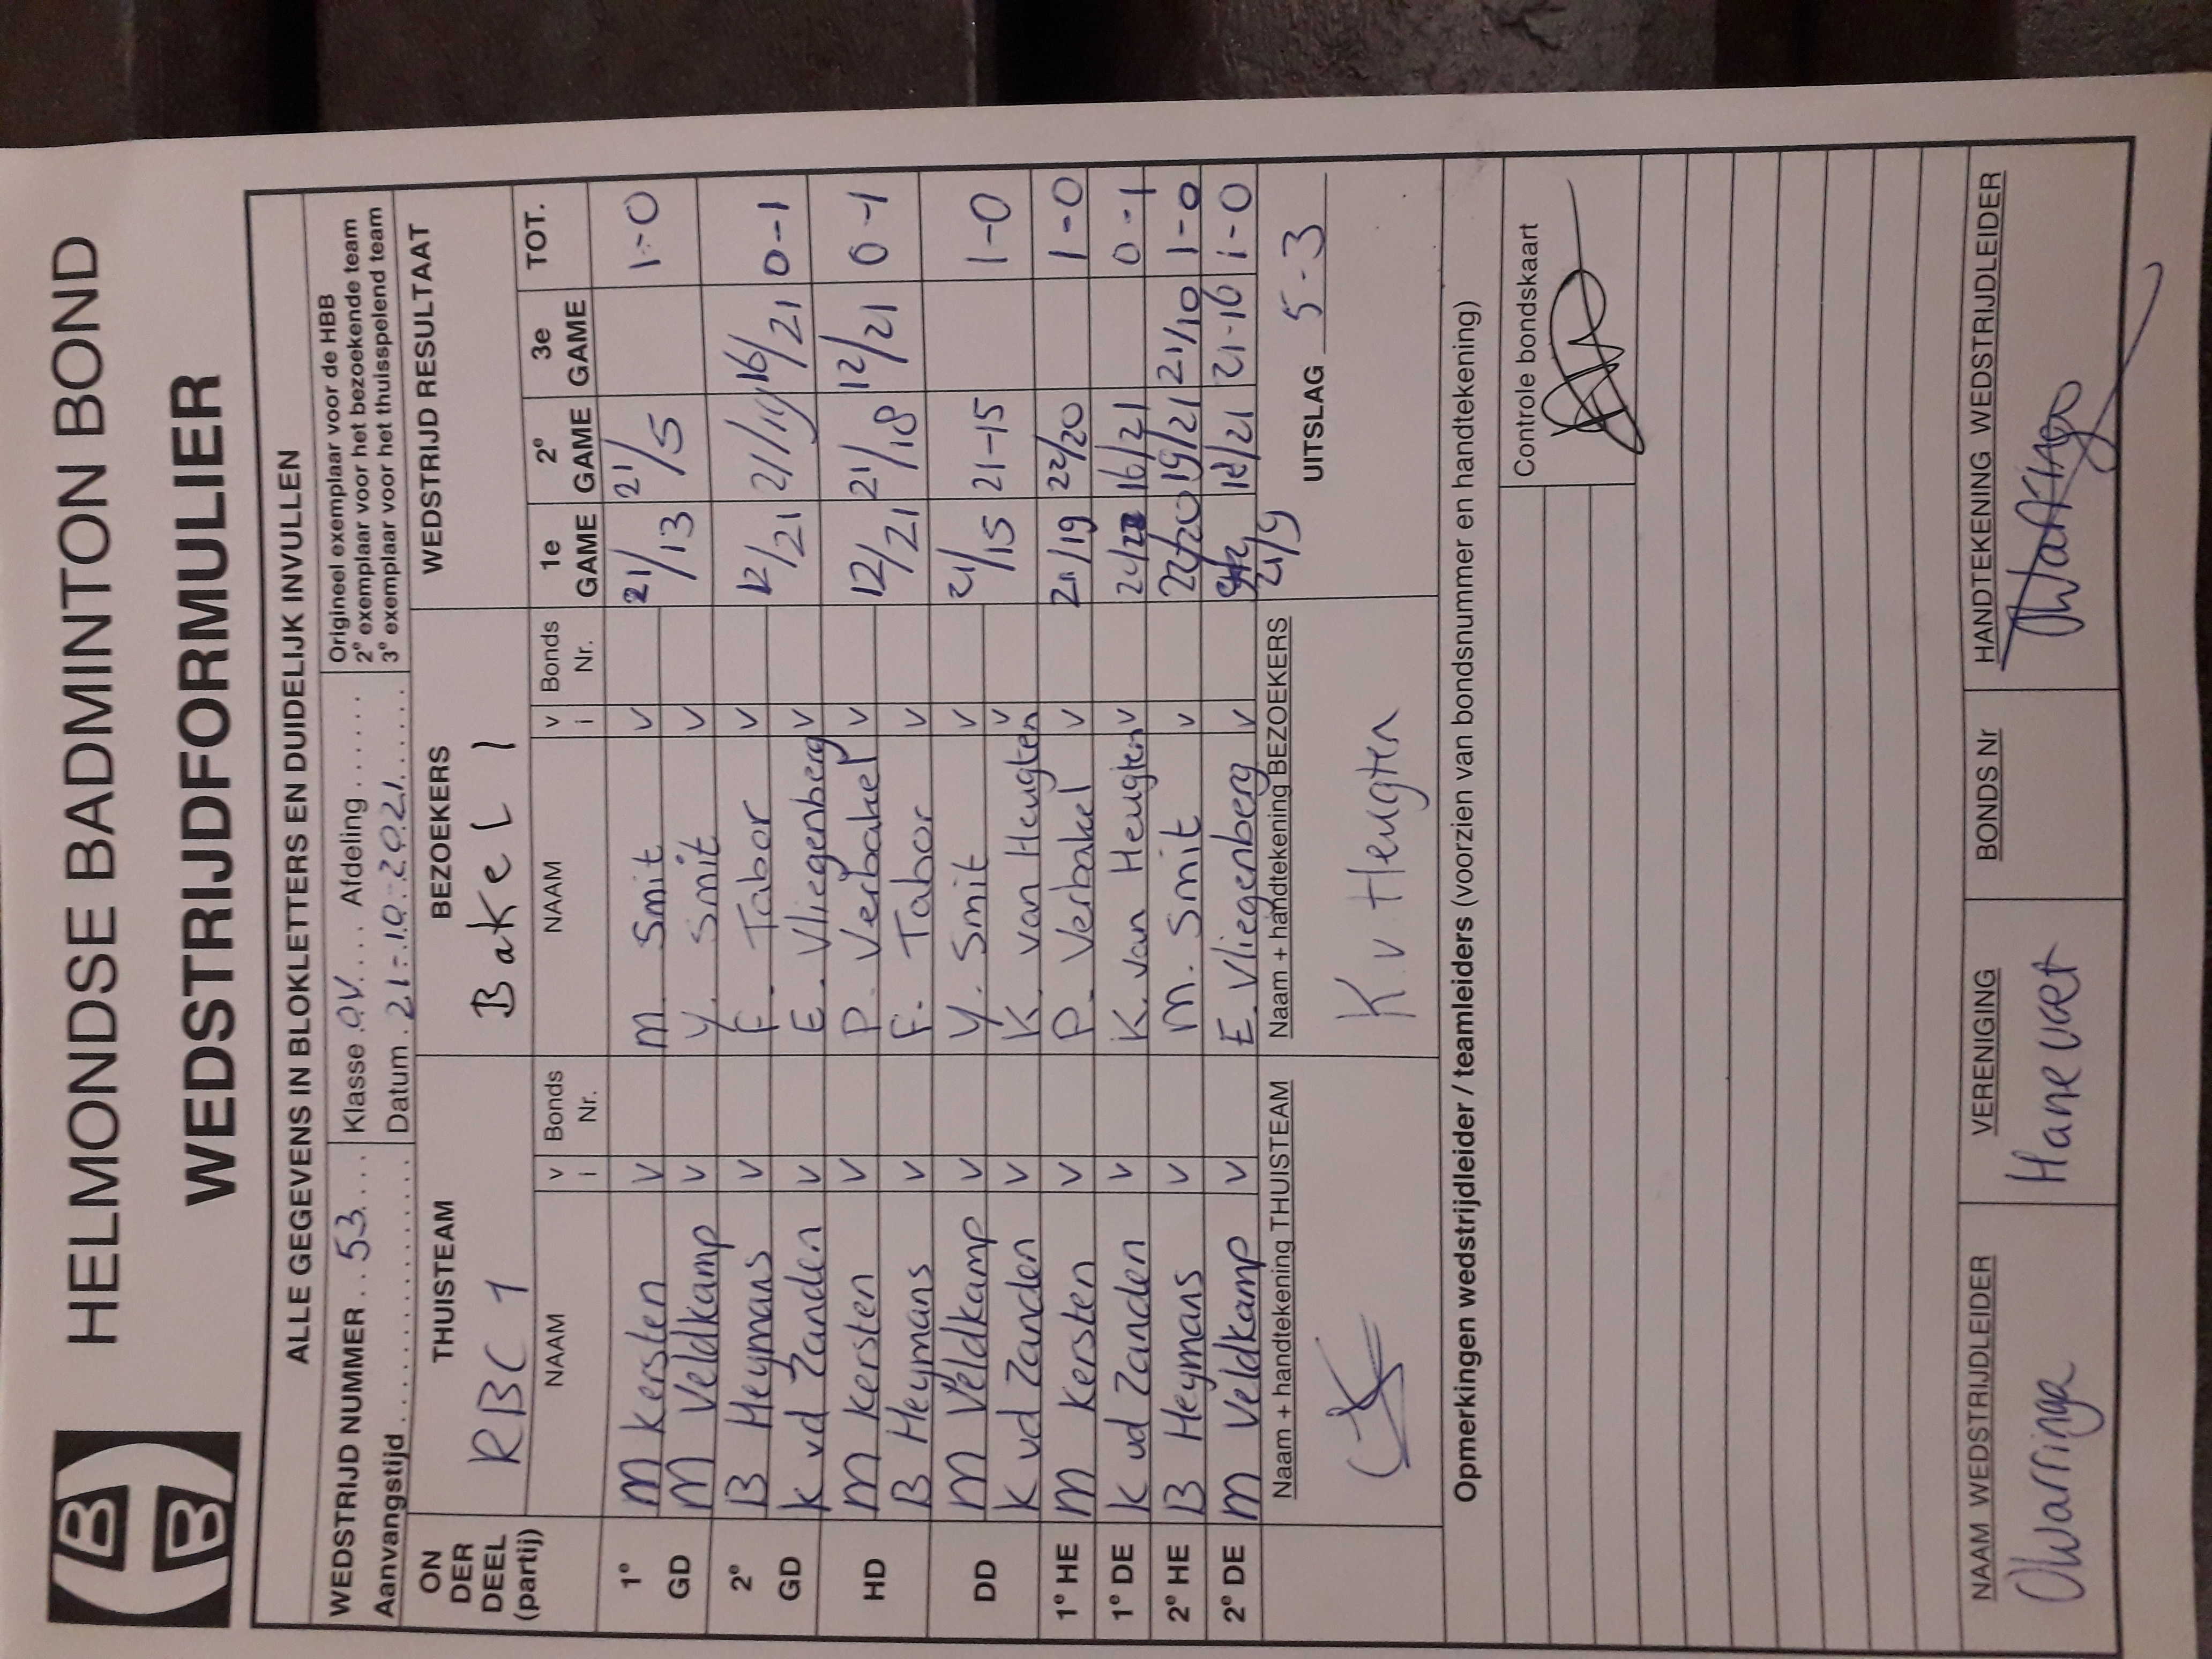 HELMONDSE BADMINTON BOND
WEDSTRIJDFORMULIER
ALLE GEGEVENS IN BLOKLETTERS EN DUIDELIJK INVULLEN
WEDSTRIJD NUMMER . . 53 . . . Klasse . O.V. . . . Afdeling . . . . . . . Origineel exemplaar voor de HBB
2e exemplaar voor het bezoekende team
Aanvangstijd . . . . . . . . . . . . . . . . . Datum . 21-10-2021 . . . . . 3e exemplaar voor het thuisspelend team
ON DER DEEL (partij) THUISTEAM BEZOEKERS WEDSTRIJD RESULTAAT
RBC 1 Bakel 1
NAAM v i Bonds Nr. NAAM v i Bonds Nr. 1e GAME 2e GAME 3e GAME TOT.
1e GD M Kersten v M. Smit v 21/13 21/5 1-0
M Veldkamp v Y. Smit v
2e GD B Heymans v F. Tabor v 12/21 21/19 16/21 0-1
K vd Zanden v E. Vliegenberg v
HD M Kersten v P. Verbakel v 12/21 21/18 12/21 0-1
B Heymans v F. Tabor v
DD M Veldkamp v Y. Smit v 21/15 21-15 1-0
K vd Zanden v K. van Heugten v
1e HE M Kersten v P. Verbakel v 21/19 22/20 1-0
1e DE K vd Zanden v K. van Heugten v 16/21 0-1
2e HE B Heymans v M. Smit v 22/20 19/21 21/10 1-0
2e DE M Veldkamp v E. Vliegenberg v 21/9 18/21 21-16 1-0
Naam + handtekening THUISTEAM Naam + handtekening BEZOEKERS
K v Heugten UITSLAG 5-3
Opmerkingen wedstrijdleider / teamleiders (voorzien van bondsnummer en handtekening)
Controle bondskaart
NAAM WEDSTRIJDLEIDER VERENIGING BONDS Nr HANDTEKENING WEDSTRIJDLEIDER
Hanevoet